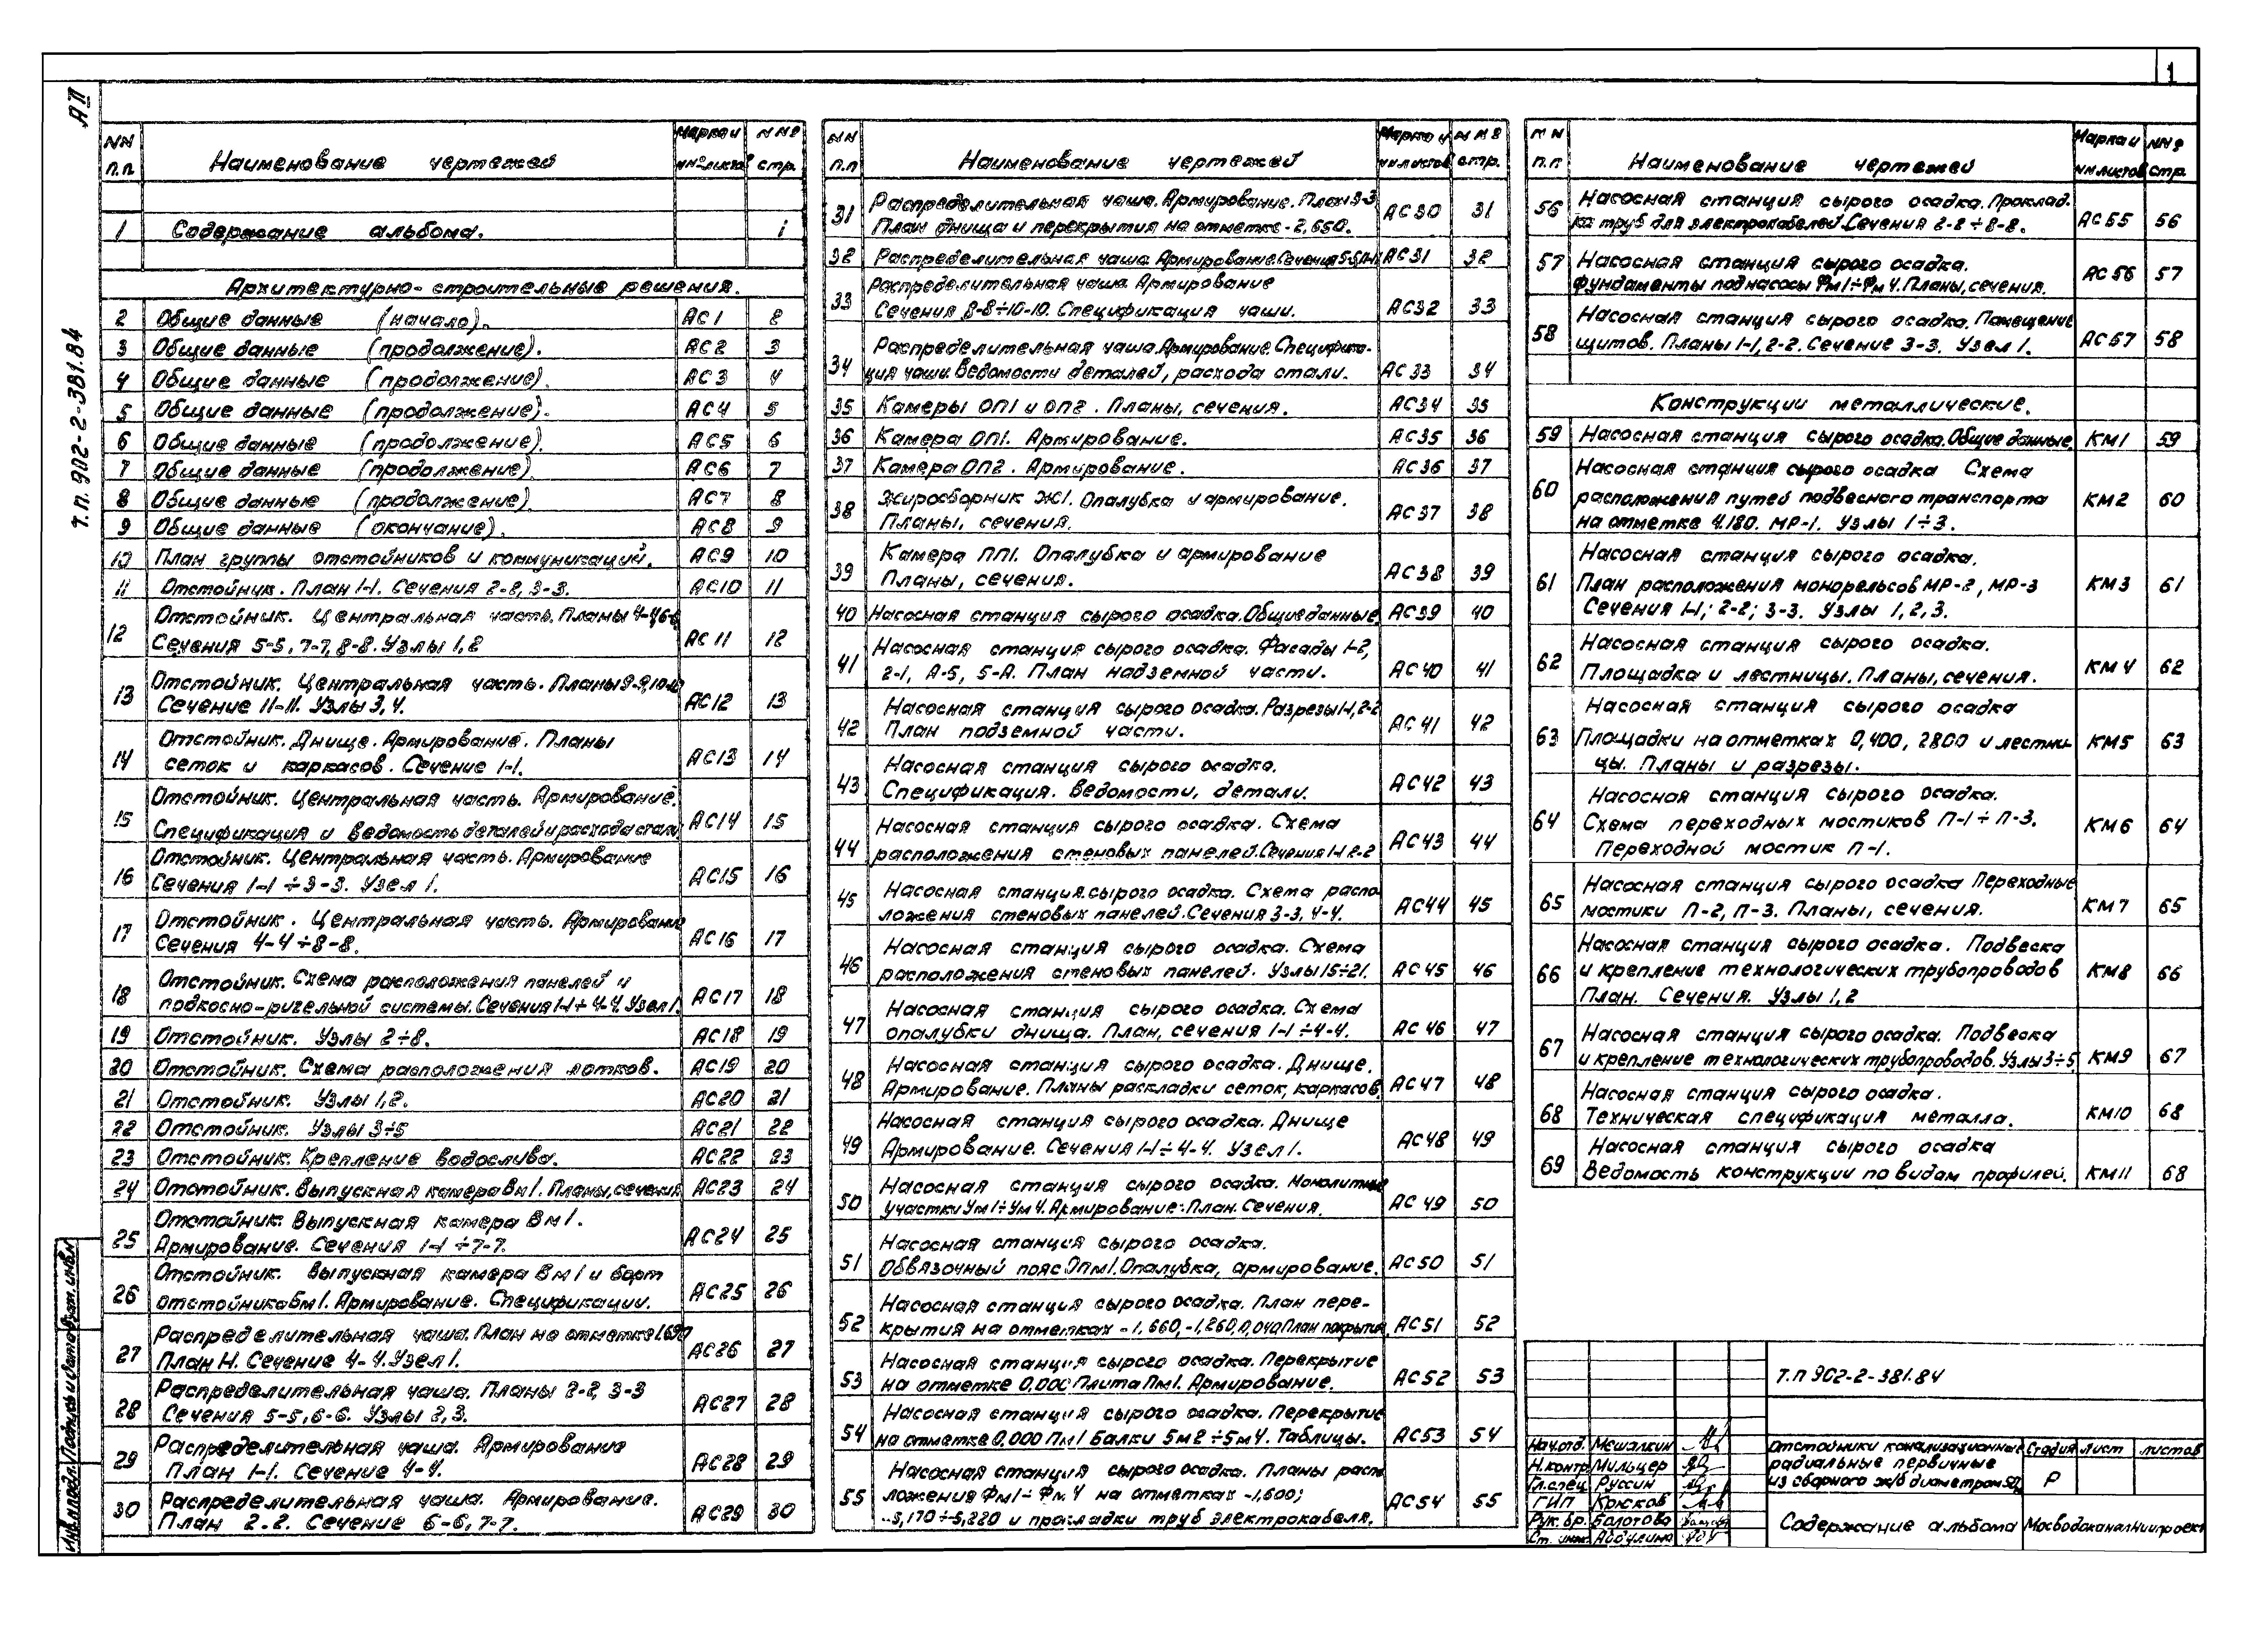 1
АII
т.п. 902-2-381.84
NN п.п. Наименование чертежей Марка и NN листов NN стр.
1 Содержание альбома. 1
Архитектурно-строительные решения.
2 Общие данные (начало). АС1 2
3 Общие данные (продолжение). АС2 3
4 Общие данные (продолжение). АС3 4
5 Общие данные (продолжение). АС4 5
6 Общие данные (продолжение). АС5 6
7 Общие данные (продолжение). АС6 7
8 Общие данные (продолжение). АС7 8
9 Общие данные (окончание). АС8 9
10 План группы отстойников и коммуникаций. АС9 10
11 Отстойник. План 1-1. Сечения 2-2, 3-3. АС10 11
12 Отстойник. Центральная часть. Планы 4-4, 6-6
Сечения 5-5, 7-7, 8-8. Узлы 1, 2 АС11 12
13 Отстойник. Центральная часть. Планы 9-9, 10-10
Сечение 11-11. Узлы 3, 4. АС12 13
14 Отстойник. Днище. Армирование. Планы
сеток и каркасов. Сечение 1-1. АС13 14
15 Отстойник. Центральная часть. Армирование.
Спецификация и ведомость деталей и расхода стали АС14 15
16 Отстойник. Центральная часть. Армирование
Сечения 1-1 ÷ 3-3. Узел 1. АС15 16
17 Отстойник. Центральная часть. Армирование
Сечения 4-4 ÷ 8-8. АС16 17
18 Отстойник. Схема расположения панелей и
подкосно-ригельной системы. Сечения 1-1 ÷ 4-4. Узел 1. АС17 18
19 Отстойник. Узлы 2÷8. АС18 19
20 Отстойник. Схема расположения лотков. АС19 20
21 Отстойник. Узлы 1, 2. АС20 21
22 Отстойник. Узлы 3÷5 АС21 22
23 Отстойник. Крепление водослива. АС22 23
24 Отстойник. Выпускная камера Вм1. Планы, сечения АС23 24
25 Отстойник. Выпускная камера Вм1.
Армирование. Сечения 1-1 ÷ 7-7. АС24 25
26 Отстойник. Выпускная камера Вм1 и борт
отстойника Бм1. Армирование. Спецификации. АС25 26
27 Распределительная чаша. План на отметке 1.690
План Н. Сечение 4-4. Узел 1. АС26 27
28 Распределительная чаша. Планы 2-2, 3-3
Сечения 5-5, 6-6. Узлы 2, 3. АС27 28
29 Распределительная чаша. Армирование
План 1-1. Сечение 4-4. АС28 29
30 Распределительная чаша. Армирование.
План 2-2. Сечение 6-6, 7-7. АС29 30
NN п.п Наименование чертежей Марка и NN листов NN стр.
31 Распределительная чаша. Армирование. План 3-3
План днища и перекрытия на отметке -2,650. АС30 31
32 Распределительная чаша. Армирование. Сечения 5-5, АС31 32
33 Распределительная чаша. Армирование
Сечения 8-8÷10-10. Спецификация чаши. АС32 33
34 Распределительная чаша. Армирование. Специфика-
ция чаши. Ведомости деталей, расхода стали. АС33 34
35 Камеры ОП1 и ОП2. Планы, сечения. АС34 35
36 Камера ОП1. Армирование. АС35 36
37 Камера ОП2. Армирование. АС36 37
38 Жиросборник Ж1. Опалубка и армирование.
Планы, сечения. АС37 38
39 Камера ПП1. Опалубка и армирование
Планы, сечения. АС38 39
40 Насосная станция сырого осадка. Общие данные. АС39 40
41 Насосная станция сырого осадка. Фасады 1-2,
2-1, А-Б, Б-А. План надземной части. АС40 41
42 Насосная станция сырого осадка. Разрезы 1-1, 2-2
План подземной части. АС41 42
43 Насосная станция сырого осадка.
Спецификация. Ведомости, детали. АС42 43
44 Насосная станция сырого осадка. Схема
расположения стеновых панелей. Сечения 1-1, 2-2 АС43 44
45 Насосная станция сырого осадка. Схема распо-
ложения стеновых панелей. Сечения 3-3, 4-4. АС44 45
46 Насосная станция сырого осадка. Схема
расположения стеновых панелей. Узлы 15÷21. АС45 46
47 Насосная станция сырого осадка. Схема
опалубки днища. План, сечения 1-1 ÷ 4-4. АС46 47
48 Насосная станция сырого осадка. Днище.
Армирование. Планы раскладки сеток, каркасов. АС47 48
49 Насосная станция сырого осадка. Днище
Армирование. Сечения 1-1 ÷ 4-4. Узел 1. АС48 49
50 Насосная станция сырого осадка. Монолитные
участки Ум1÷Ум4. Армирование. План. Сечения. АС49 50
51 Насосная станция сырого осадка.
Обвязочный пояс Опм1. Опалубка, армирование. АС50 51
52 Насосная станция сырого осадка. План пере-
крытия на отметках -1,660, -1,260, План покрытия АС51 52
53 Насосная станция сырого осадка. Перекрытие
на отметке 0,000 Плита Пм1. Армирование. АС52 53
54 Насосная станция сырого осадка. Перекрытие
на отметке 0,000 Пм1 Балки Бм2÷Бм4. Таблицы. АС53 54
55 Насосная станция сырого осадка. Планы распо
ложения Фм1÷Фм4 на отметках -1,600;
-5,170÷-5,220 и прокладки труб электрокабеля. АС54 55
NN п.п. Наименование чертежей Марка и NN листов NN стр.
56 Насосная станция сырого осадка. Проклад-
ка труб для электрокабелей. Сечения 2-2÷8-8. АС55 56
57 Насосная станция сырого осадка.
Фундаменты под насосы Фм1÷Фм4. Планы, сечения. АС56 57
58 Насосная станция сырого осадка. Помещение
щитов. Планы 1-1, 2-2. Сечение 3-3. Узел 1. АС57 58
Конструкции металлические.
59 Насосная станция сырого осадка. Общие данные. КМ1 59
60 Насосная станция сырого осадка Схема
расположения путей подвесного транспорта
на отметке 4.180. МР-1. Узлы 1÷3. КМ2 60
61 Насосная станция сырого осадка.
План расположения монорельсов МР-2, МР-3
Сечения 1-1; 2-2; 3-3. Узлы 1, 2, 3. КМ3 61
62 Насосная станция сырого осадка.
Площадка и лестницы. Планы, сечения. КМ4 62
63 Насосная станция сырого осадка
Площадки на отметках 0,400, 2800 и лестни-
цы. Планы и разрезы. КМ5 63
64 Насосная станция сырого осадка.
Схема переходных мостиков П-1÷П-3.
Переходной мостик П-1. КМ6 64
65 Насосная станция сырого осадка Переходные
мостики П-2, П-3. Планы, сечения. КМ7 65
66 Насосная станция сырого осадка. Подвеска
и крепление технологических трубопроводов
План. Сечения. Узлы 1, 2 КМ8 66
67 Насосная станция сырого осадка. Подвеска
и крепление технологических трубопроводов. Узлы 3÷5 КМ9 67
68 Насосная станция сырого осадка.
Техническая спецификация металла. КМ10 68
69 Насосная станция сырого осадка
Ведомость конструкции по видам профилей. КМ11 68
Т.п 902-2-381.84
Нач.отд. Мешалкин
Н.контр Мильцер
Гл.спец Руссин
ГИП Крюков
Рук.бр. Болотова
Ст. инж.
Отстойники канализационные
радиальные первичные
из сборного ж/б диаметром 50м
Стадия лист листов
Р
Содержание альбома Мосводоканалниипроект
Инв.N подл. Подпись и дата Взам. инв.N